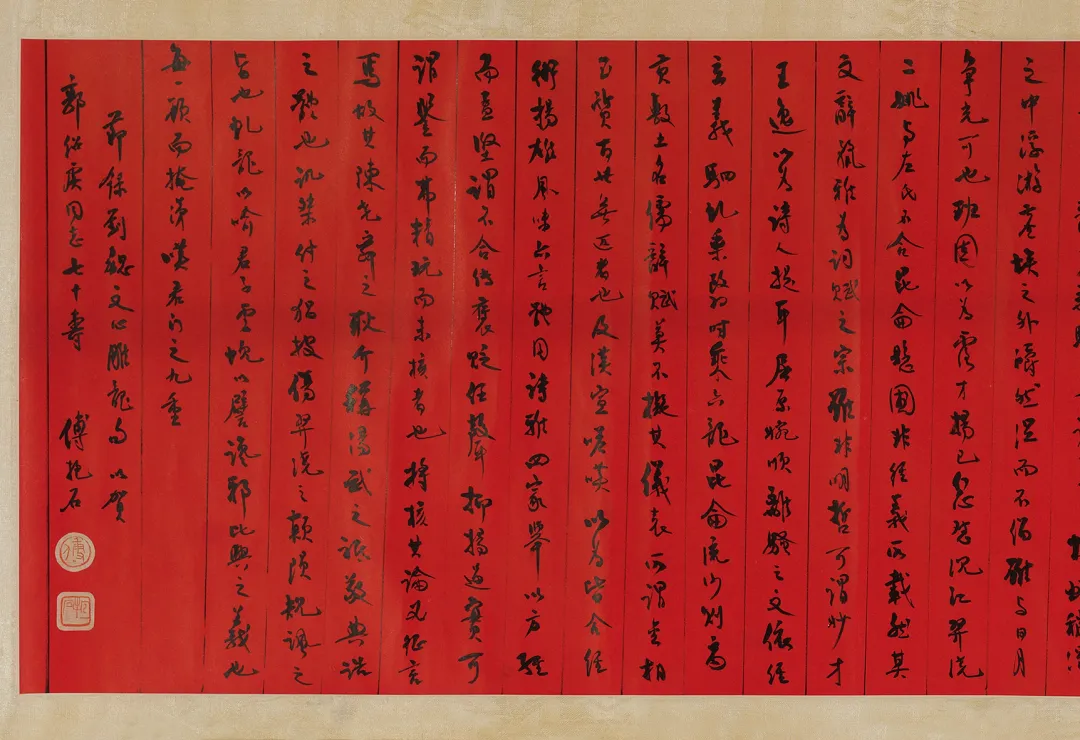 之中浮游塵埃之外皭然涅而不緇雖与日月
爭光可也班固以為露才揚己忿懟沉江羿澆
二姚与左氏不合昆侖懸圃非經義所載然其
文辭麗雅為詞賦之宗雖非明哲可謂妙才
王逸以為詩人提耳屈原婉順離騷之文依經
立義駟虬乘鷖則時乘六龍昆侖流沙則禹
貢敷土名儒辭賦莫不擬其儀表所謂金相
玉質百世無匹者也及漢宣嗟嘆以為皆合經
術揚雄風味亦言體同詩雅四家舉以方經
而孟堅謂不合傳褒貶任聲抑揚過實可
謂鑒而弗精玩而未核者也將核其論必征言
焉故其陳堯舜之耿介稱湯武之祗敬典誥
之體也譏桀紂之猖披傷羿澆之顛隕規諷之
旨也虬龍以喻君子雲蜺以譬讒邪比興之義也
每一顧而掩涕嘆君門之九重
節錄劉勰文心雕龍句以賀
郭紹虞同志七十壽 傅抱石
傅
抱石